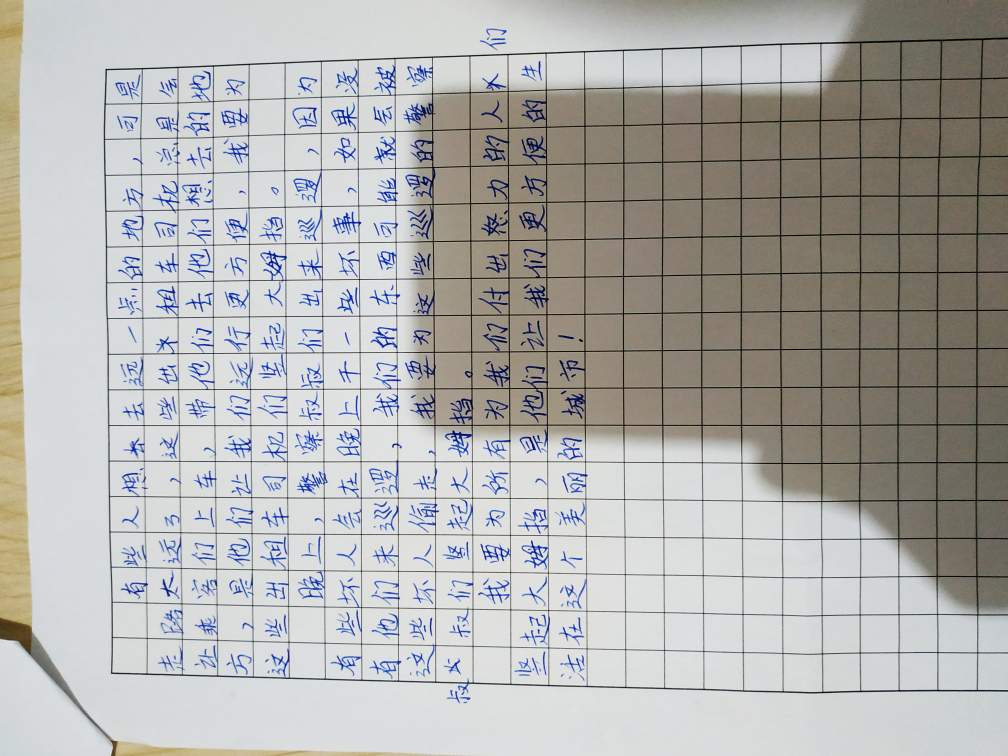 有些人想去远一点的地方，可是
走路太远了，这些出租车司机总是会
让乘客们上车，带他们去他们想去的地
方，是他们让我们远行更方便，我要为
这些出租车司机们竖起大姆指。
晚上，警察叔叔们出来巡逻，因为
有些坏人会在晚上干一些坏事，如果没
有他们来巡逻，我们的东西可能就会被
这些坏人偷走，我要为这些巡逻的警察
叔叔们竖起大姆指。
我要为所有为我们付出努力的人们
竖起大姆指，是他们让我们更方便的生
活在这个美丽的城市！